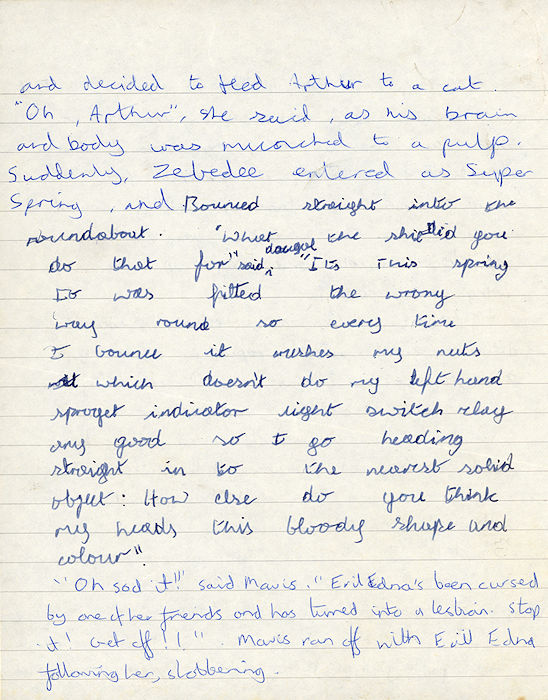 and decided to feed Arthur to a cat.
"Oh, Arthur", she said, as his brain
and body was munched to a pulp.
Suddenly, Zebedee entered as Super
Spring, and Bounced straight into the
roundabout. "What the shit did you
do that for" said dougal "Its this spring
It was fitted the wrong
way round so every time
I bounce it crushes my nuts
which doesn't do my left hand
sproget indicator light switch relay
any good so I go heading
straight in to the nearest solid
object: How else do you think
my heads this bloody shape and
colour".
"Oh sod it!!" said Mavis. "Evil Edna's been cursed
by one of her friends and has turned into a lesbian. Stop
it! Get off!!". Mavis ran off with Evil Edna
following her, slobbering.